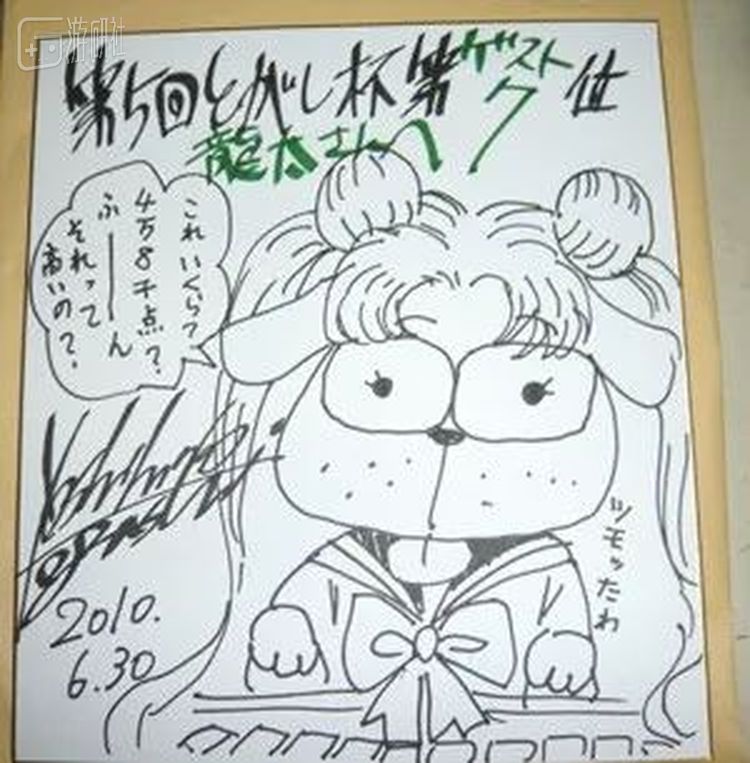 游研社
第5回とがし杯第ゲストク位
龍太さんへ
これいくら?
4万8千点?
ふーーん
それって
高いの?
ツモッたわ
2010.
6.30